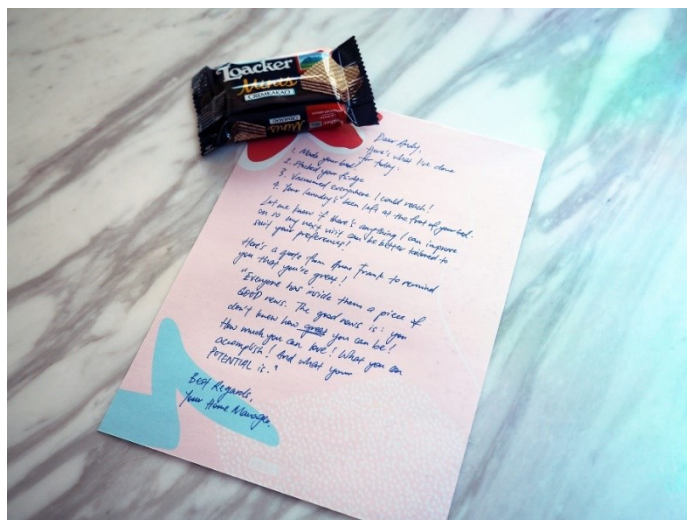 Loacker
Minis
CREMKAKAO
Minis
Dear Andy,
Here's what I've done
for today:
1. Made your bed!
2. Stocked your fridge
3. Vacuumed everywhere I could reach!
4. Your laundry's been left at the front of your bed.
Let me know if there's anything I can improve
on so my next visit can be better tailored to
suit your preference!
Here's a quote from Anne Frank to remind
you that you're great!
"Everyone has inside them a piece of
GOOD news. The good news is: you
don't know how great you can be!
How much you can love! What you can
accomplish! And what your
POTENTIAL is."
Best Regards,
Your Home Manager.